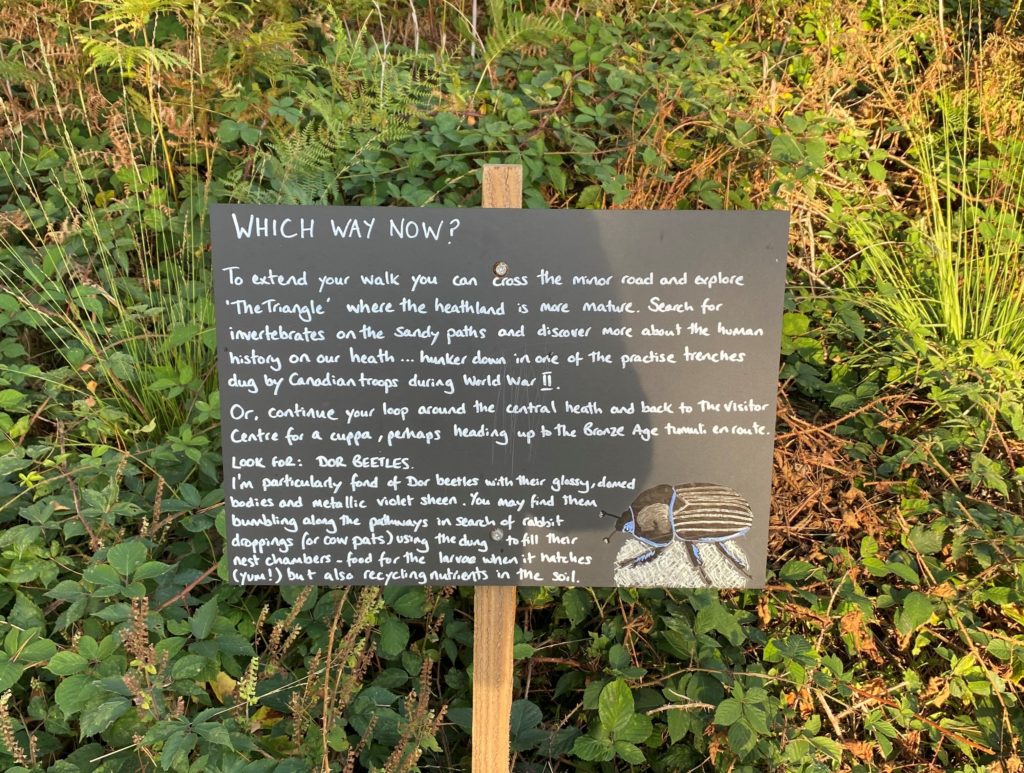 WHICH WAY NOW?
To extend your walk you can cross the minor road and explore
'The Triangle' where the heathland is more mature. Search for
invertebrates on the sandy paths and discover more about the human
history on our heath ... hunker down in one of the practise trenches
dug by Canadian troops during World War II.
Or, continue your loop around the central heath and back to The Visitor
Centre for a cuppa, perhaps heading up to The Bronze Age tumuli en route.
LOOK FOR: DOR BEETLES.
I'm particularly fond of Dor beetles with their glossy, domed
bodies and metallic violet sheen. You may find them
bumbling along the pathways in search of rabbit
droppings (or cow pats) using the dung to fill their
nest chambers - food for the larvae when it hatches
(yum!) but also recycling nutrients in the soil.